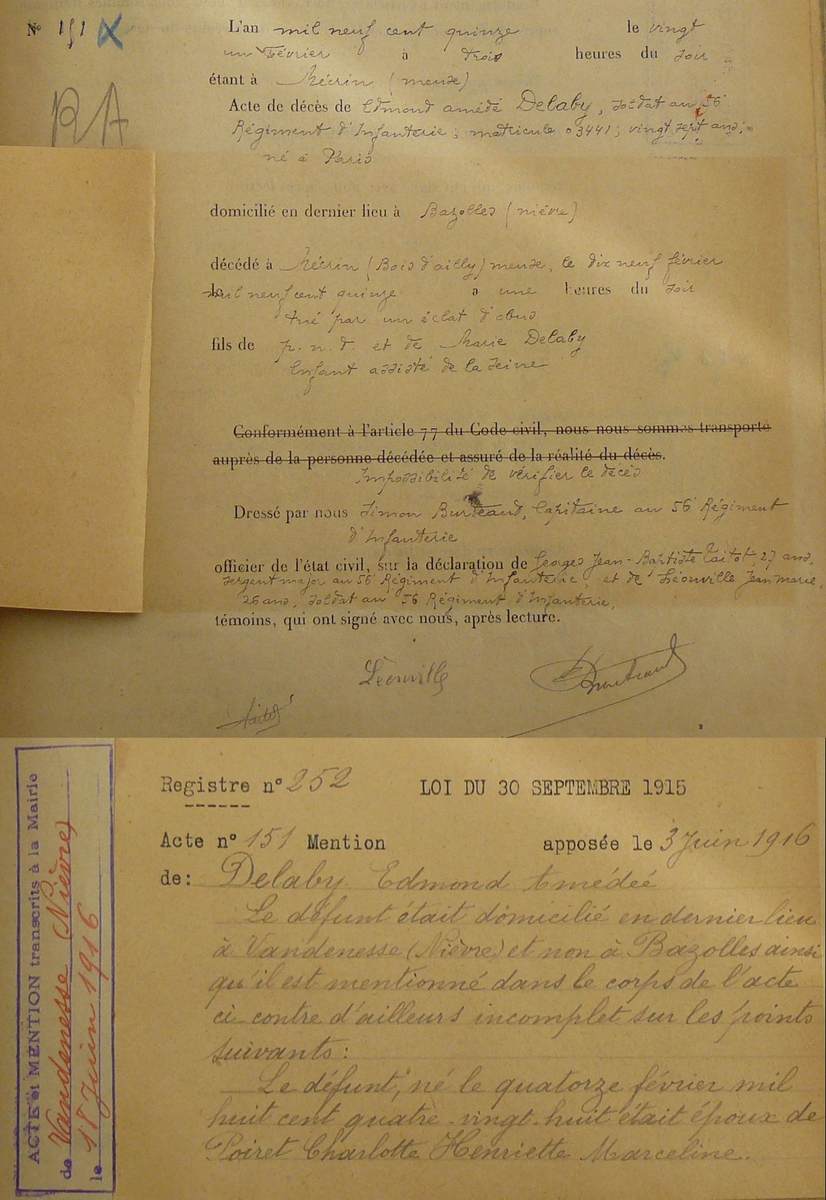 N° 151 X
RA
L'an mil neuf cent quinze le vingt
un Février à trois heures du soir
étant à Mécrin (meuse)
Acte de décès de Edmond amédé Delaby, soldat au 56
Régiment d'Infanterie; matricule 03441; vingt sept ans;
né à Paris
domicilié en dernier lieu à Bazolles (nièvre)
décédé à Mécrin (Bois d'ailly) meuse, le dix neuf février
mil neuf cent quinze à une heures du soir
tué par un éclat d'obus
fils de p.n.d et de Marie Delaby
Enfant assisté de la Seine
Conformément à l'article 77 du Code civil, nous nous sommes transporté
auprès de la personne décédée et assuré de la réalité du décès.
Impossibilité de vérifier le décès
Dressé par nous Simon Burteaud, Capitaine au 56 Régiment
d'Infanterie
officier de l'état civil, sur la déclaration de Georges Jean-Baptiste Taitot, 27 ans,
sergent major au 56 Régiment d'Infanterie, et de Léonville Jean Marie,
26 ans, soldat au 56 Régiment d'Infanterie,
témoins, qui ont signé avec nous, après lecture.
Léonville
Taitot
ACTE et MENTION transcrits à la Mairie
de Vandenesse (Nièvre)
le 18 Juin 1916
Registre n° 252 LOI DU 30 SEPTEMBRE 1915
Acte n° 151 Mention apposée le 3 Juin 1916
de: Delaby Edmond Amédée
Le défunt était domicilié en dernier lieu
à Vandenesse (Nièvre) et non à Bazolles ainsi
qu'il est mentionné dans le corps de l'acte
ci-contre d'ailleurs incomplet sur les points
suivants:
Le défunt, né le quatorze février mil
huit cent quatre-vingt-huit était époux de
Poiret Charlotte Henriette Marceline.